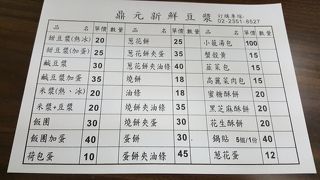 鼎元新鮮豆漿 訂購專線: 02-2351-8527
品名 單價 數量 品名 單價 數量 品名 單價 數量
甜豆漿(熱、冰) 20 蔥花餅 25 小籠湯包 100
甜豆漿(加蛋) 25 蔥花餅夾蛋 35 蟹殼黃 15
鹹豆漿 30 蔥花餅夾油條 40 韮菜包 15
鹹豆漿加蛋 35 燒餅 18 高麗菜肉包 15
米漿(熱、冰) 20 油條 18 蜜糖酥餅 20
米漿+豆漿 20 燒餅夾油條 35 黑芝麻酥餅 20
飯團 30 燒餅夾蛋 30 花生酥餅 20
飯團加蛋 40 蛋餅 30 鍋貼 5個/1份 40
荷包蛋 10 蛋餅夾油條 45 蔥花蛋 12